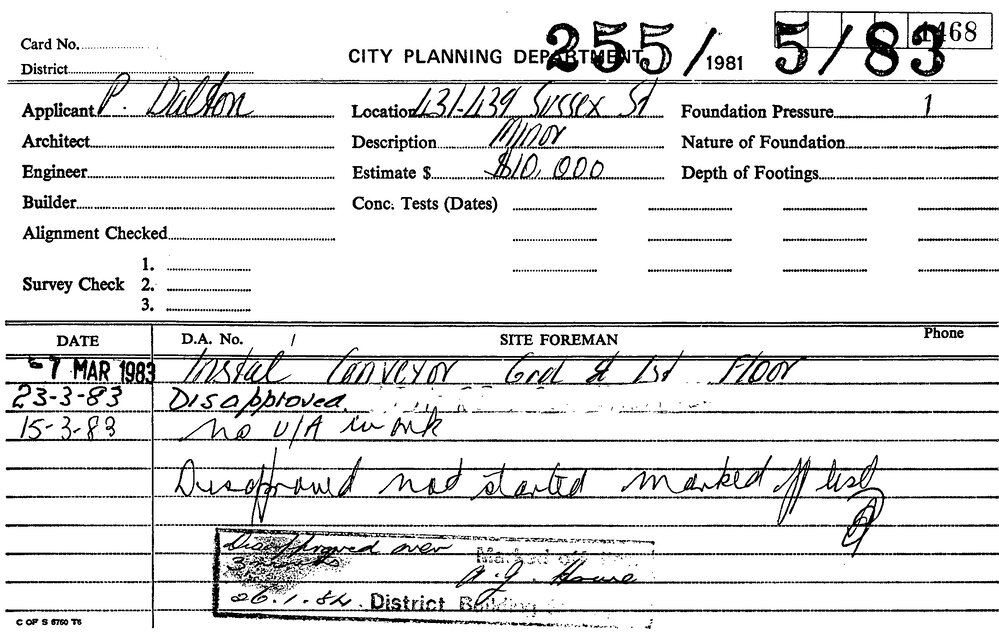 Card No.
District
CITY PLANNING DEPARTMENT
255/1981 5/83
1468
Applicant P. Dalton Location 431-439 Sussex St Foundation Pressure 1
Architect Description Minor Nature of Foundation
Engineer Estimate $ $10,000 Depth of Footings
Builder Conc. Tests (Dates)
Alignment Checked
Survey Check 1.
2.
3.
DATE D.A. No. SITE FOREMAN Phone
7 MAR 1983 Instal Conveyor Grd & 1st Floor
23-3-83 Disapproved
15-3-83 no U/A work
Disapproved not started marked off list
Disapproved over
3
Marked off
26.1.84 District Building
C OF S 6750 T6